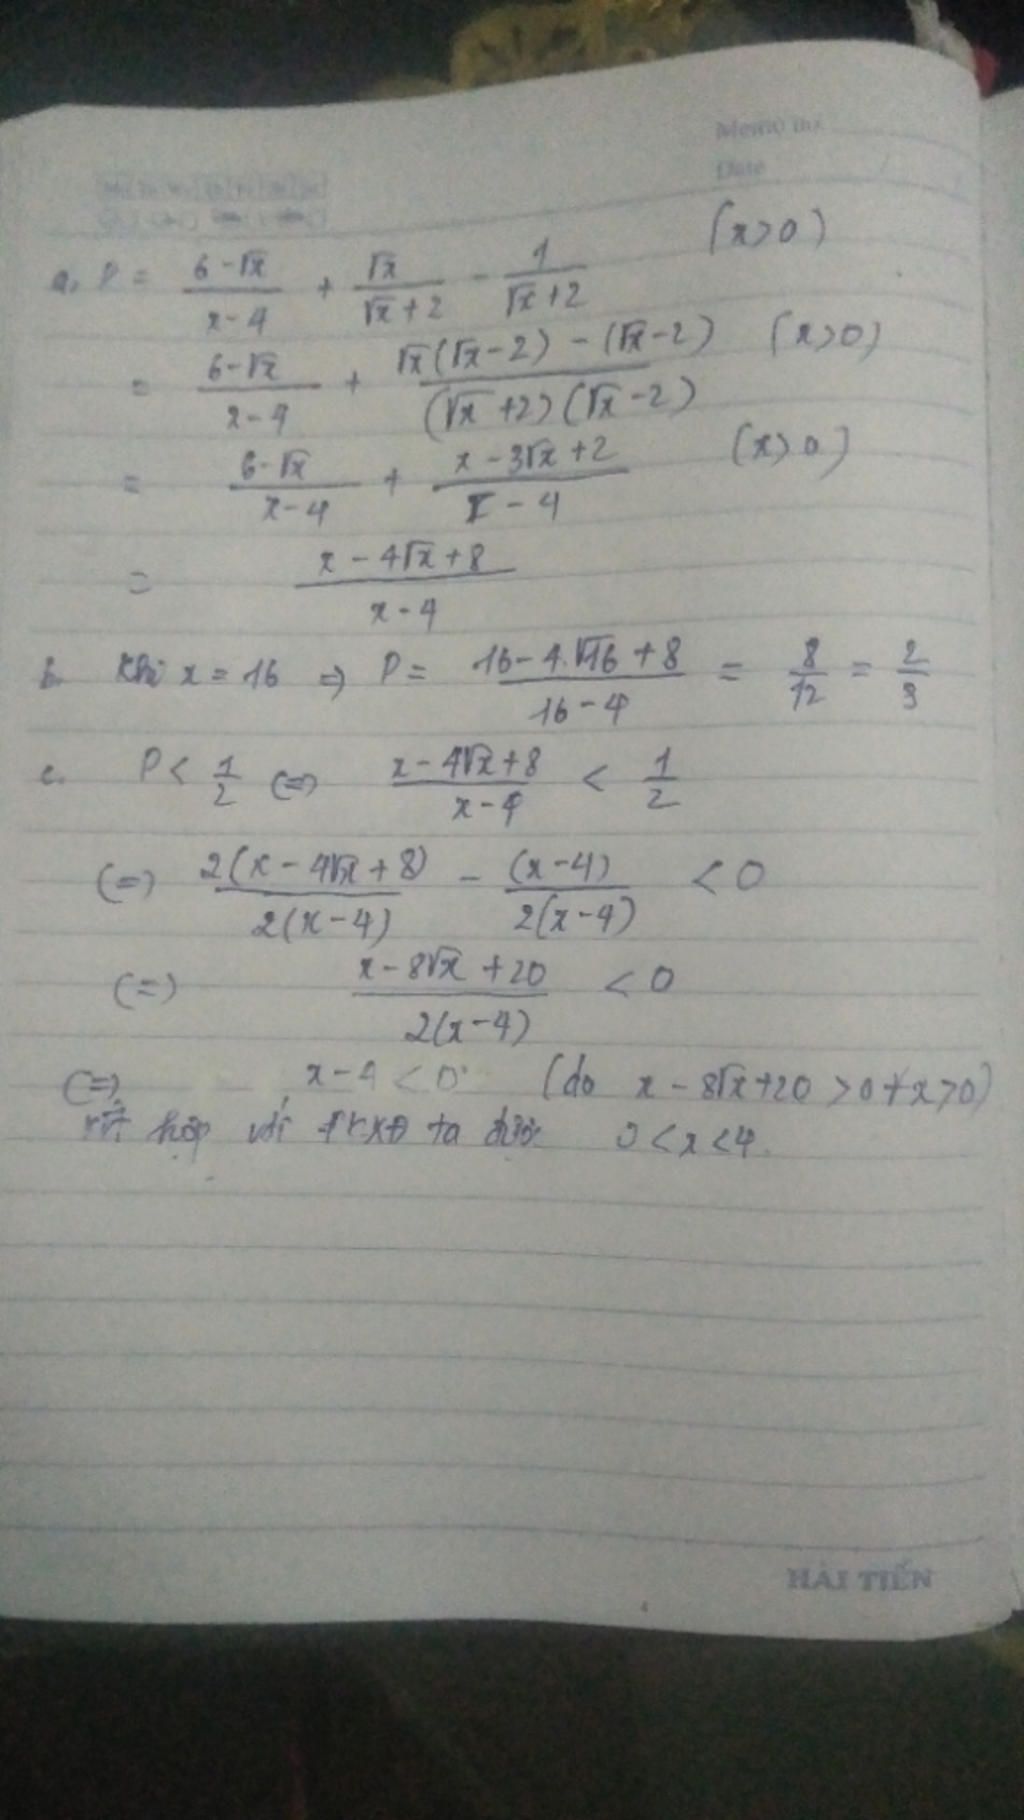 Memo no.
Date
a, P = \frac{6-\sqrt{x}}{x-4} + \frac{\sqrt{x}}{\sqrt{x}+2} - \frac{1}{\sqrt{x}+2} (x>0)
= \frac{6-\sqrt{x}}{x-4} + \frac{\sqrt{x}(\sqrt{x}-2)-(\sqrt{x}-2)}{(\sqrt{x}+2)(\sqrt{x}-2)} (x>0)
= \frac{6-\sqrt{x}}{x-4} + \frac{x-3\sqrt{x}+2}{x-4} (x>0)
= \frac{x-4\sqrt{x}+8}{x-4}
b. Khi x = 16 => P = \frac{16-4.\sqrt{16}+8}{16-4} = \frac{8}{12} = \frac{2}{3}
c. P < \frac{1}{2} (=) \frac{x-4\sqrt{x}+8}{x-4} < \frac{1}{2}
(=) \frac{2(x-4\sqrt{x}+8)}{2(x-4)} - \frac{(x-4)}{2(x-4)} < 0
(=) \frac{x-8\sqrt{x}+20}{2(x-4)} < 0
(=) x-4 < 0 (do x-8\sqrt{x}+20 > 0 ∀x>0)
kết hợp với ĐKXĐ ta được 0 < x < 4.
HẢI TIẾN